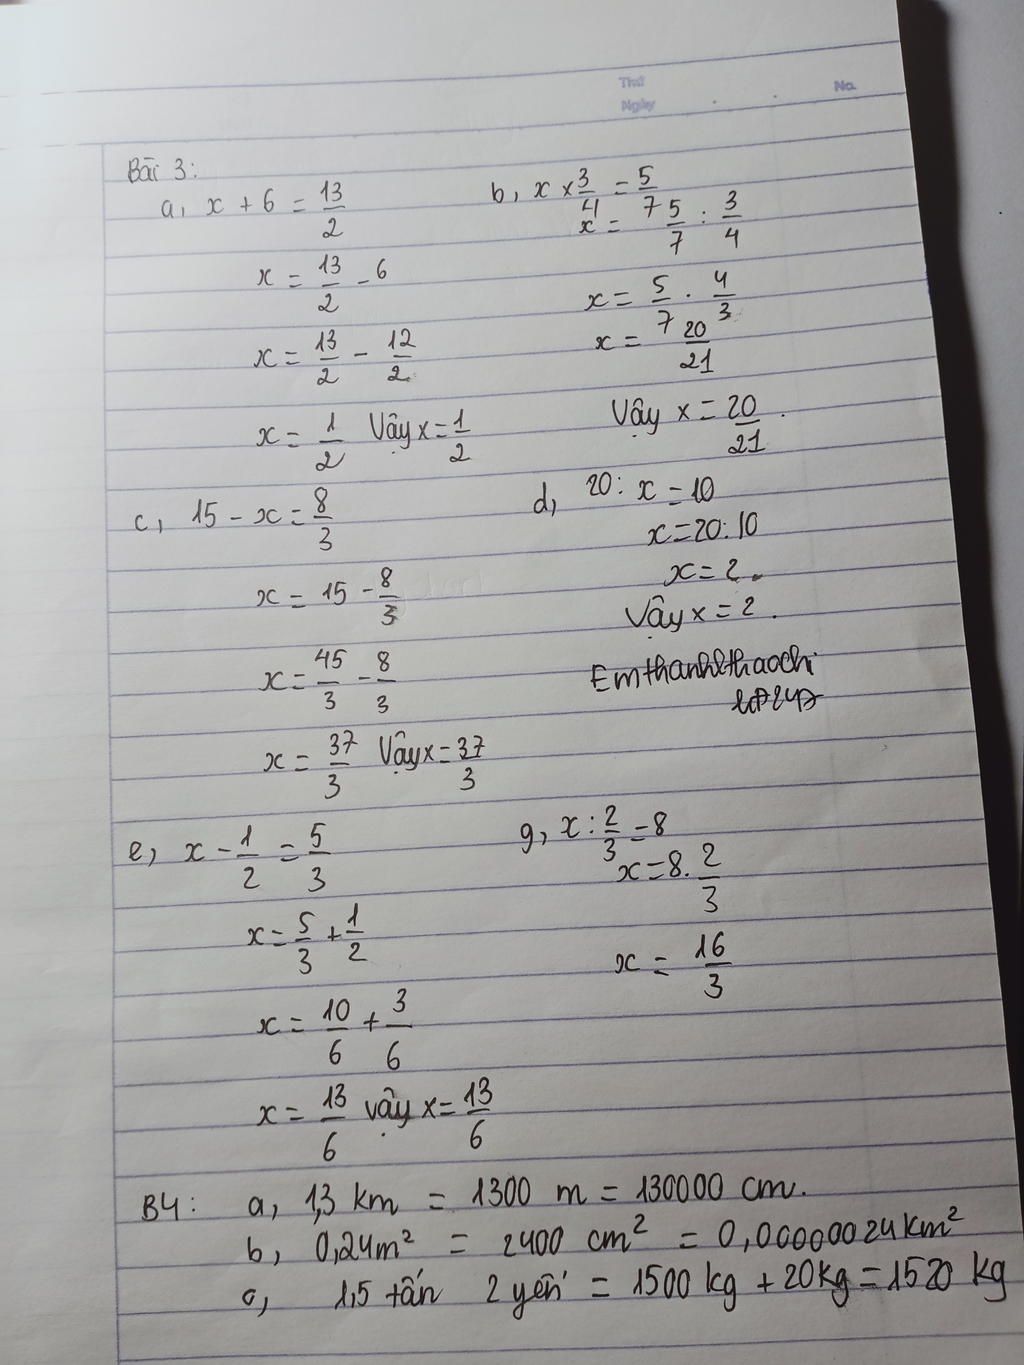 Thứ
Ngày
No.
Bài 3:
a, x + 6 = 13/2
x = 13/2 - 6
x = 13/2 - 12/2
x = 1/2 Vậy x = 1/2
b, x × 3/4 = 5/7
x = 5/7 : 3/4
x = 5/7 . 4/3
x = 20/21
Vậy x = 20/21 .
c, 15 - x = 8/3
x = 15 - 8/3
x = 45/3 - 8/3
x = 37/3 Vậy x = 37/3
d, 20 : x = 10
x = 20 : 10
x = 2.
Vậy x = 2.
e, x - 1/2 = 5/3
x = 5/3 + 1/2
x = 10/6 + 3/6
x = 13/6 vậy x = 13/6
g, x : 2/3 = 8
x = 8 . 2/3
x = 16/3
B4: a, 1,3 km = 1300 m = 130000 cm.
b, 0,24m² = 2400 cm² = 0,00000024 km²
c, 1,5 tấn 2 yến = 1500 kg + 20kg = 1520 kg